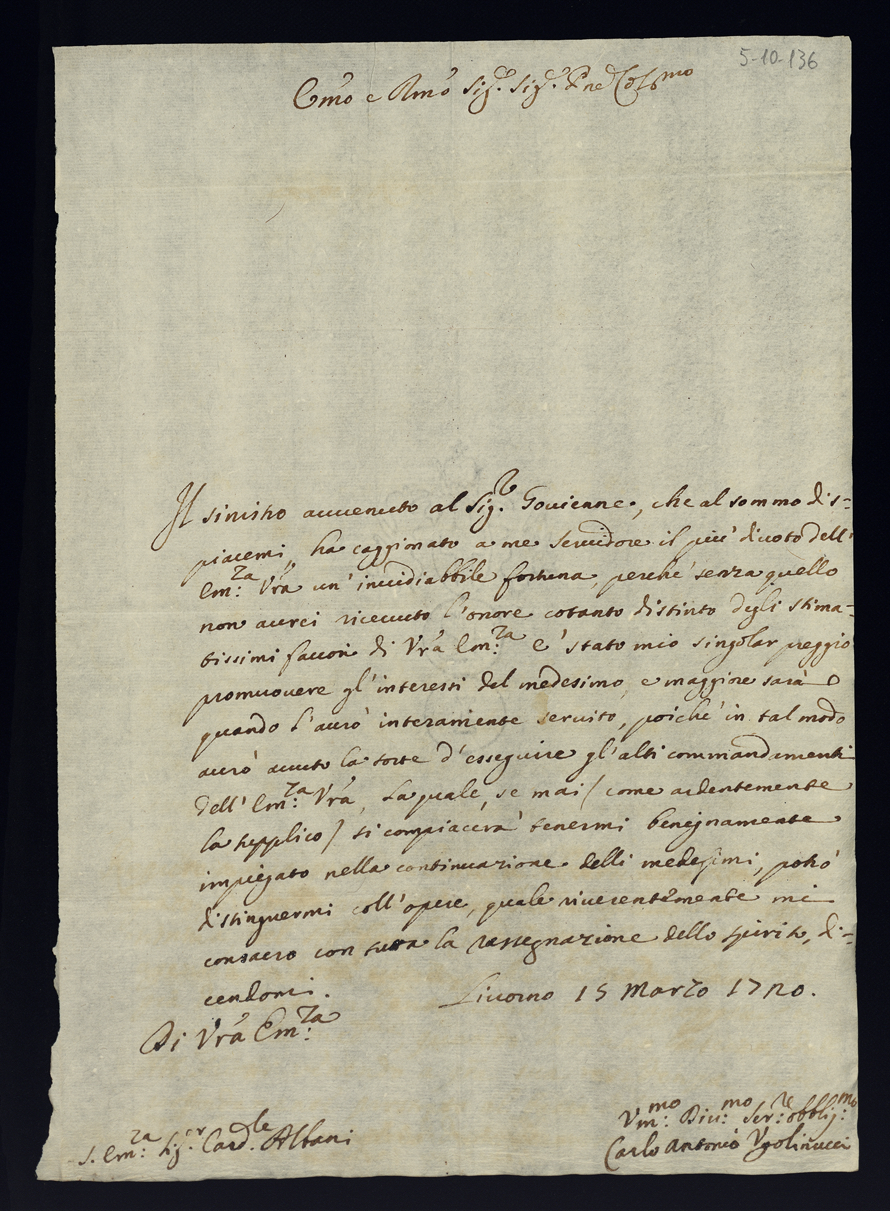 5-10-136
Emo e Rmo Sig.r Sig.r Pne Colmo
Il sinistro auuenuto al Sig.r Gouienne, che al sommo dis=
piacemi, ha caggionato a me seruidore il piu' diuoto dell'
Em:za Vrã un' inuidiabbile fortuna, perche' senza quello
non aurei riceuuto l'onore cotanto distinto degli stima=
tissimi fauori di Vrã Em:za E' stato mio singolar preggio
promuouere gl'interessi del medesimo, e maggiore sarà
quando l'aurò interamente seruito, poiche' in tal modo
aurò auuto la sorte d'esseguire gl'alti commandamenti
dell' Em:za Vrã, La quale, se mai / come ardentemente
la supplico / si compiacerà tenermi benignamente
impiegato nella continuazione delli medesimi, potrò
distinguermi coll'opere, quale riuerentemente mi
consacro con tutta la rassegnazione dello spirito, di=
cendomi.
Liuorno 15 Marzo 1720.
Di Vrã Em:za
Vm:mo Diu:mo Ser:re obblig:mo
S. Em:za Sig.r Card.le Albani
Carlo Antonio Vgolinucci